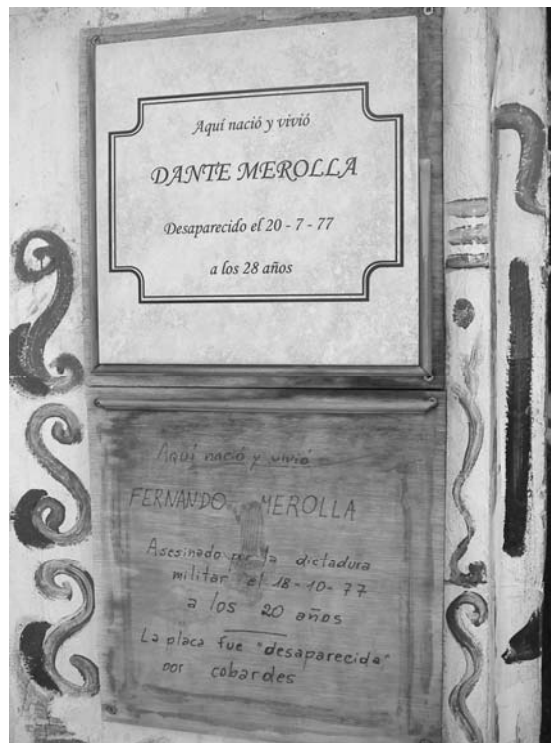 Aquí nació y vivió
DANTE MEROLLA
Desaparecido el 20 - 7 - 77
a los 28 años
Aquí nació y vivió
FERNANDO MEROLLA
Asesinado por la dictadura
militar el 18 - 10 - 77
a los 20 años
La placa fue "desaparecida"
por cobardes